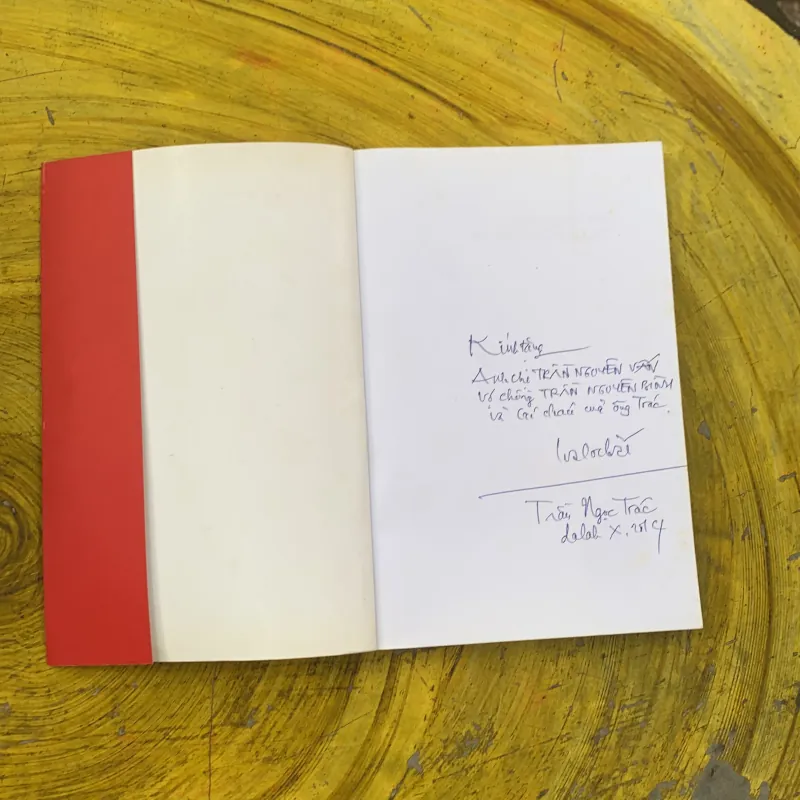 Kính tặng
Anh chị TRẦN NGUYÊN VẤN
Vợ chồng TRẦN NGUYÊN
và các cháu của ông Trác.
Trần Ngọc Trác
dalah X. 2014